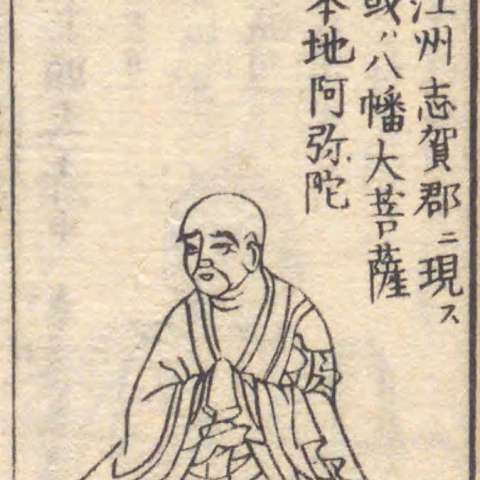 江州志賀郡ニ現ス
或ハ八幡大菩薩
本地阿弥陀